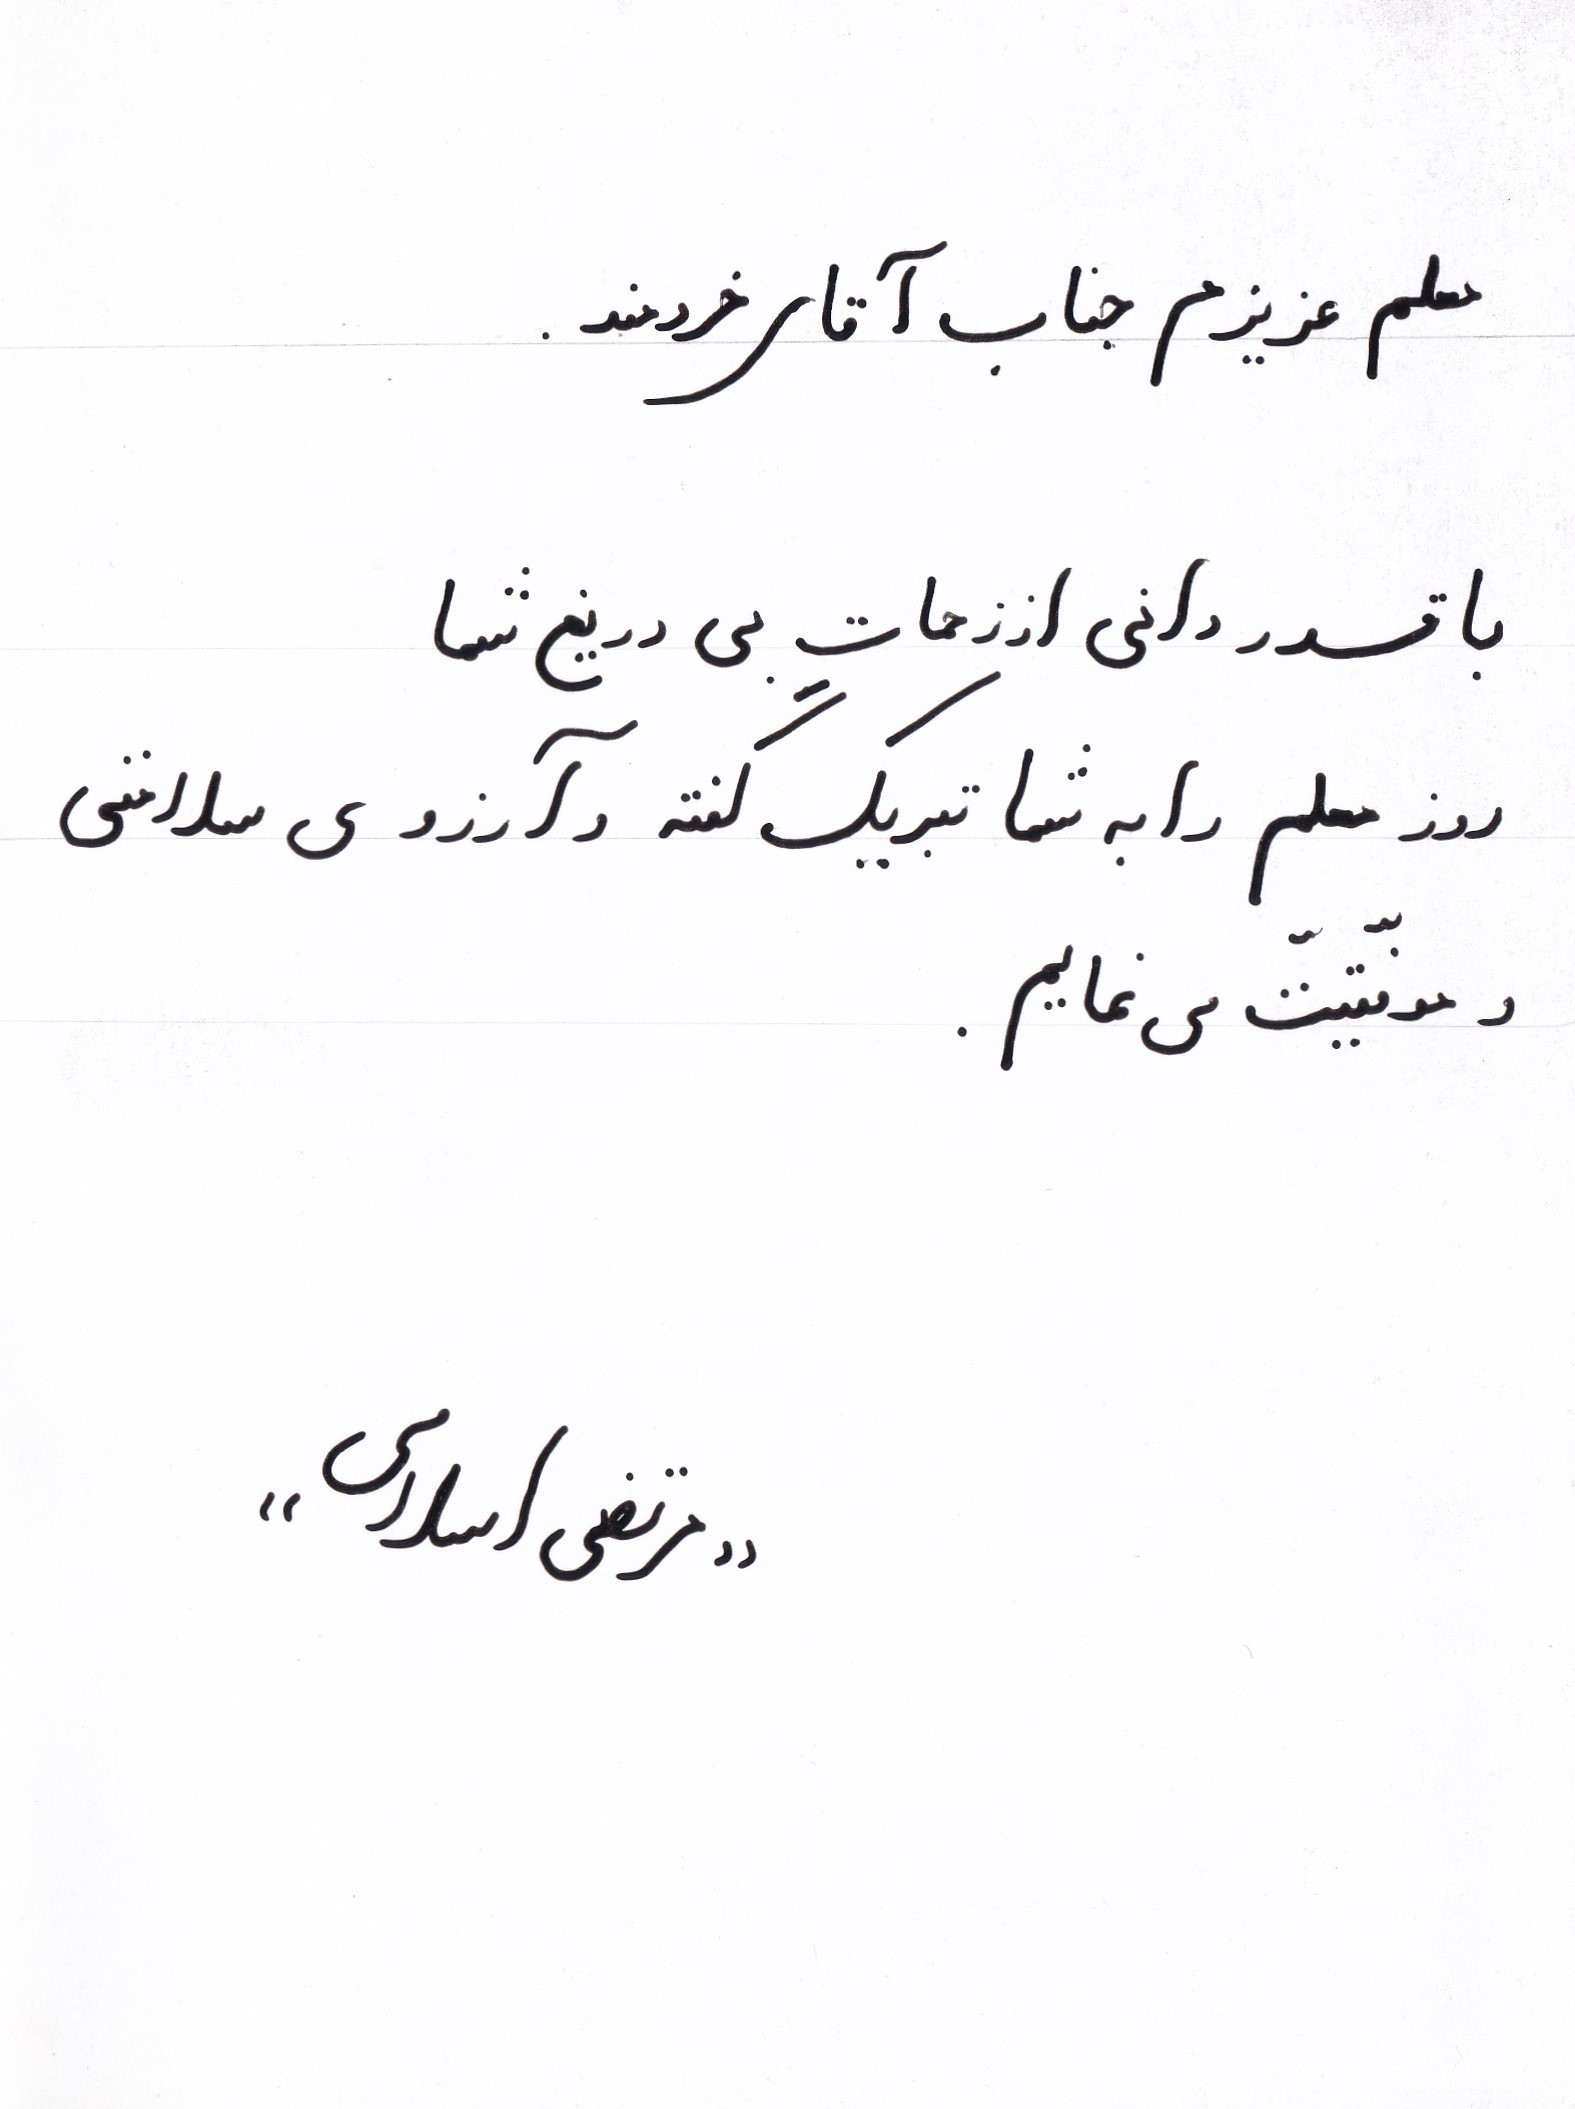 معلم عزیزم جناب آقای خردمند .
با قدردانی از زحمات بی دریغ شما
روز معلم را به شما تبریک گفته و آرزوی سلامتی
و موفّقیّت می نمایم .
„ مرتضی اسلامی “